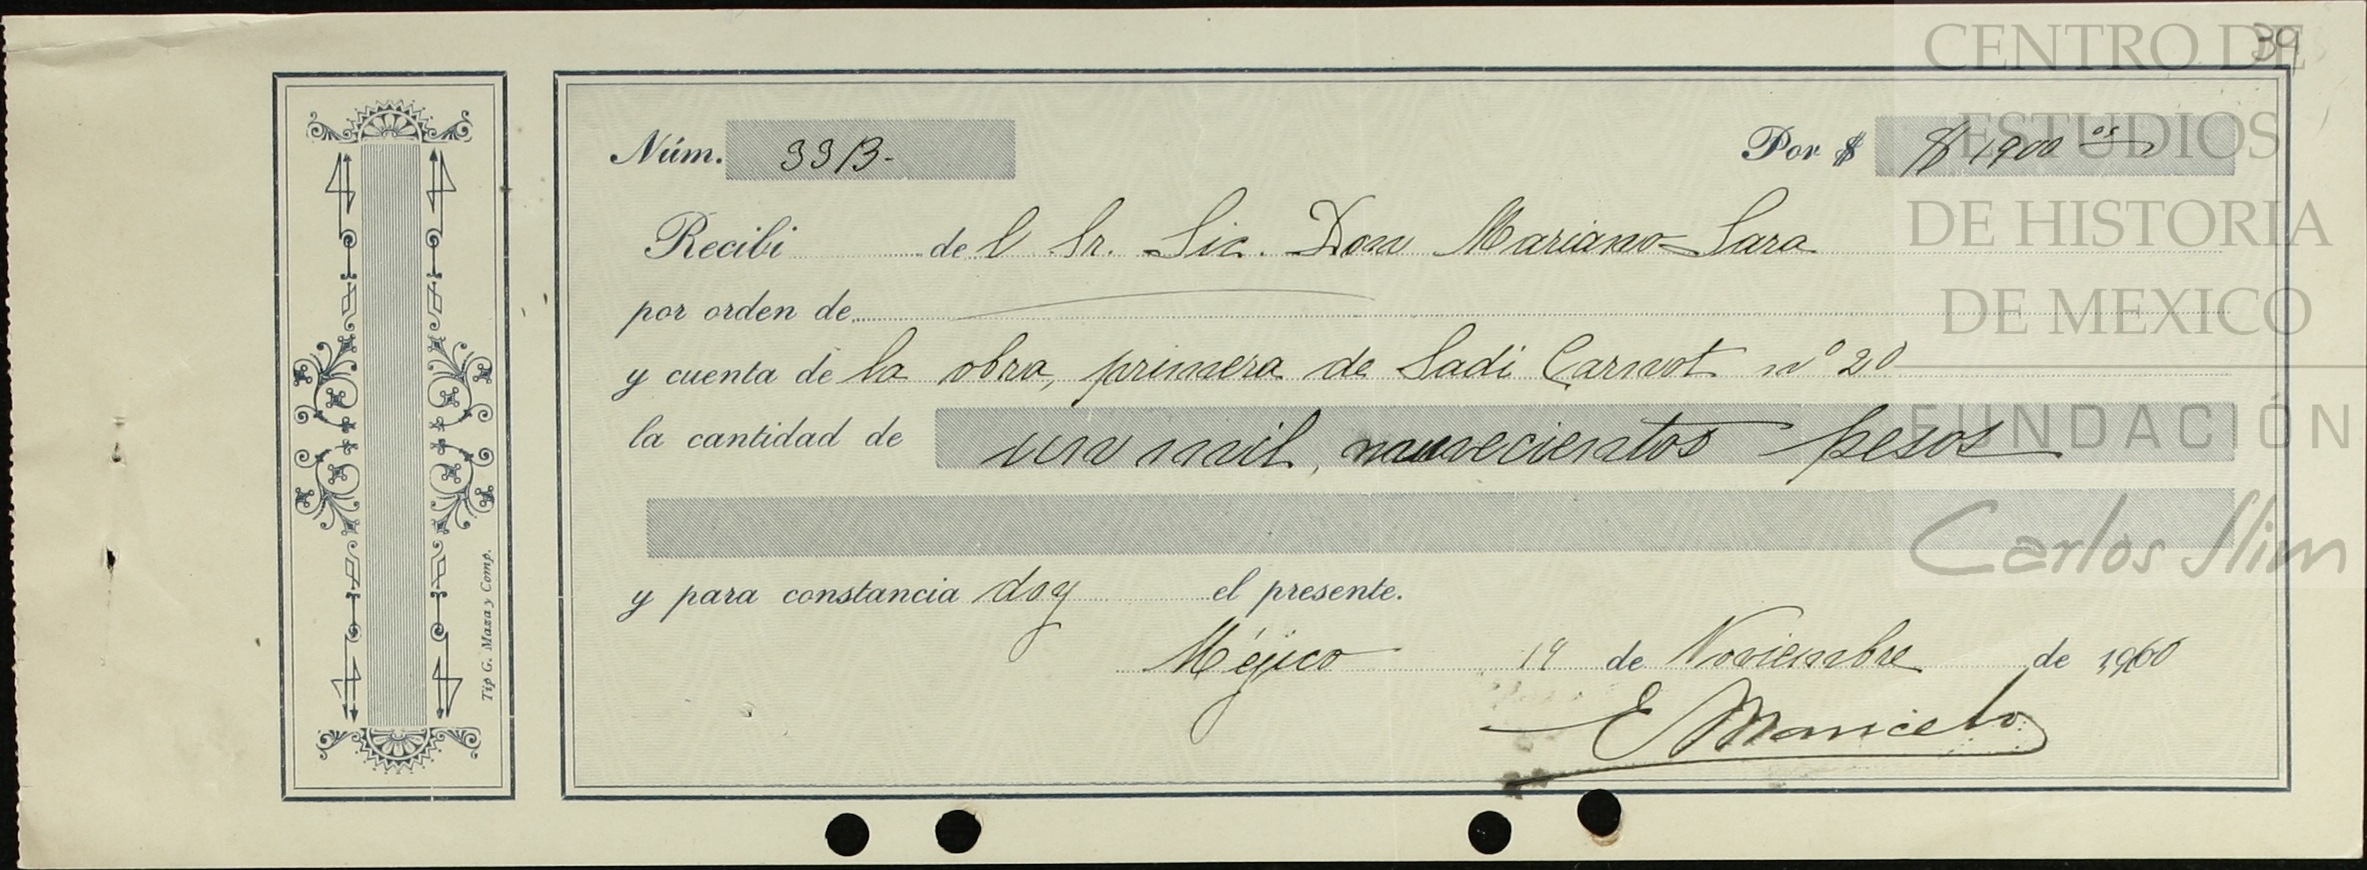 39
Núm. 33B- Por $ $ 1900 os
Recibi del Sr. Lic. Don Mariano Lara
por orden de
y cuenta de la obra, primera de Sadi Carnot nº 20
la cantidad de un mil, nuvecientos pesos
y para constancia doy el presente.
Méjico 19 de Noviembre de 1900
E Mariceto
Tip G. Maza y Comp.
CENTRO DE
ESTUDIOS
DE HISTORIA
DE MEXICO
FUNDACIÓN
Carlos Slim